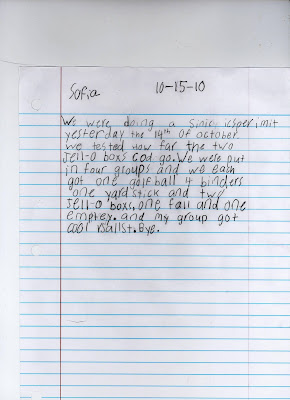 Sofia 10-15-10
We were doing a Sinic icsperimit
yesterday the 14th of october
we tested how far the two
Jell-O boxs cod go. We were put
in four groups and we each
got one golfball 4 binders
one yardstick and two
Jell-O boxs, one full and one
emptey. and my group got
cool rsallst. Bye.